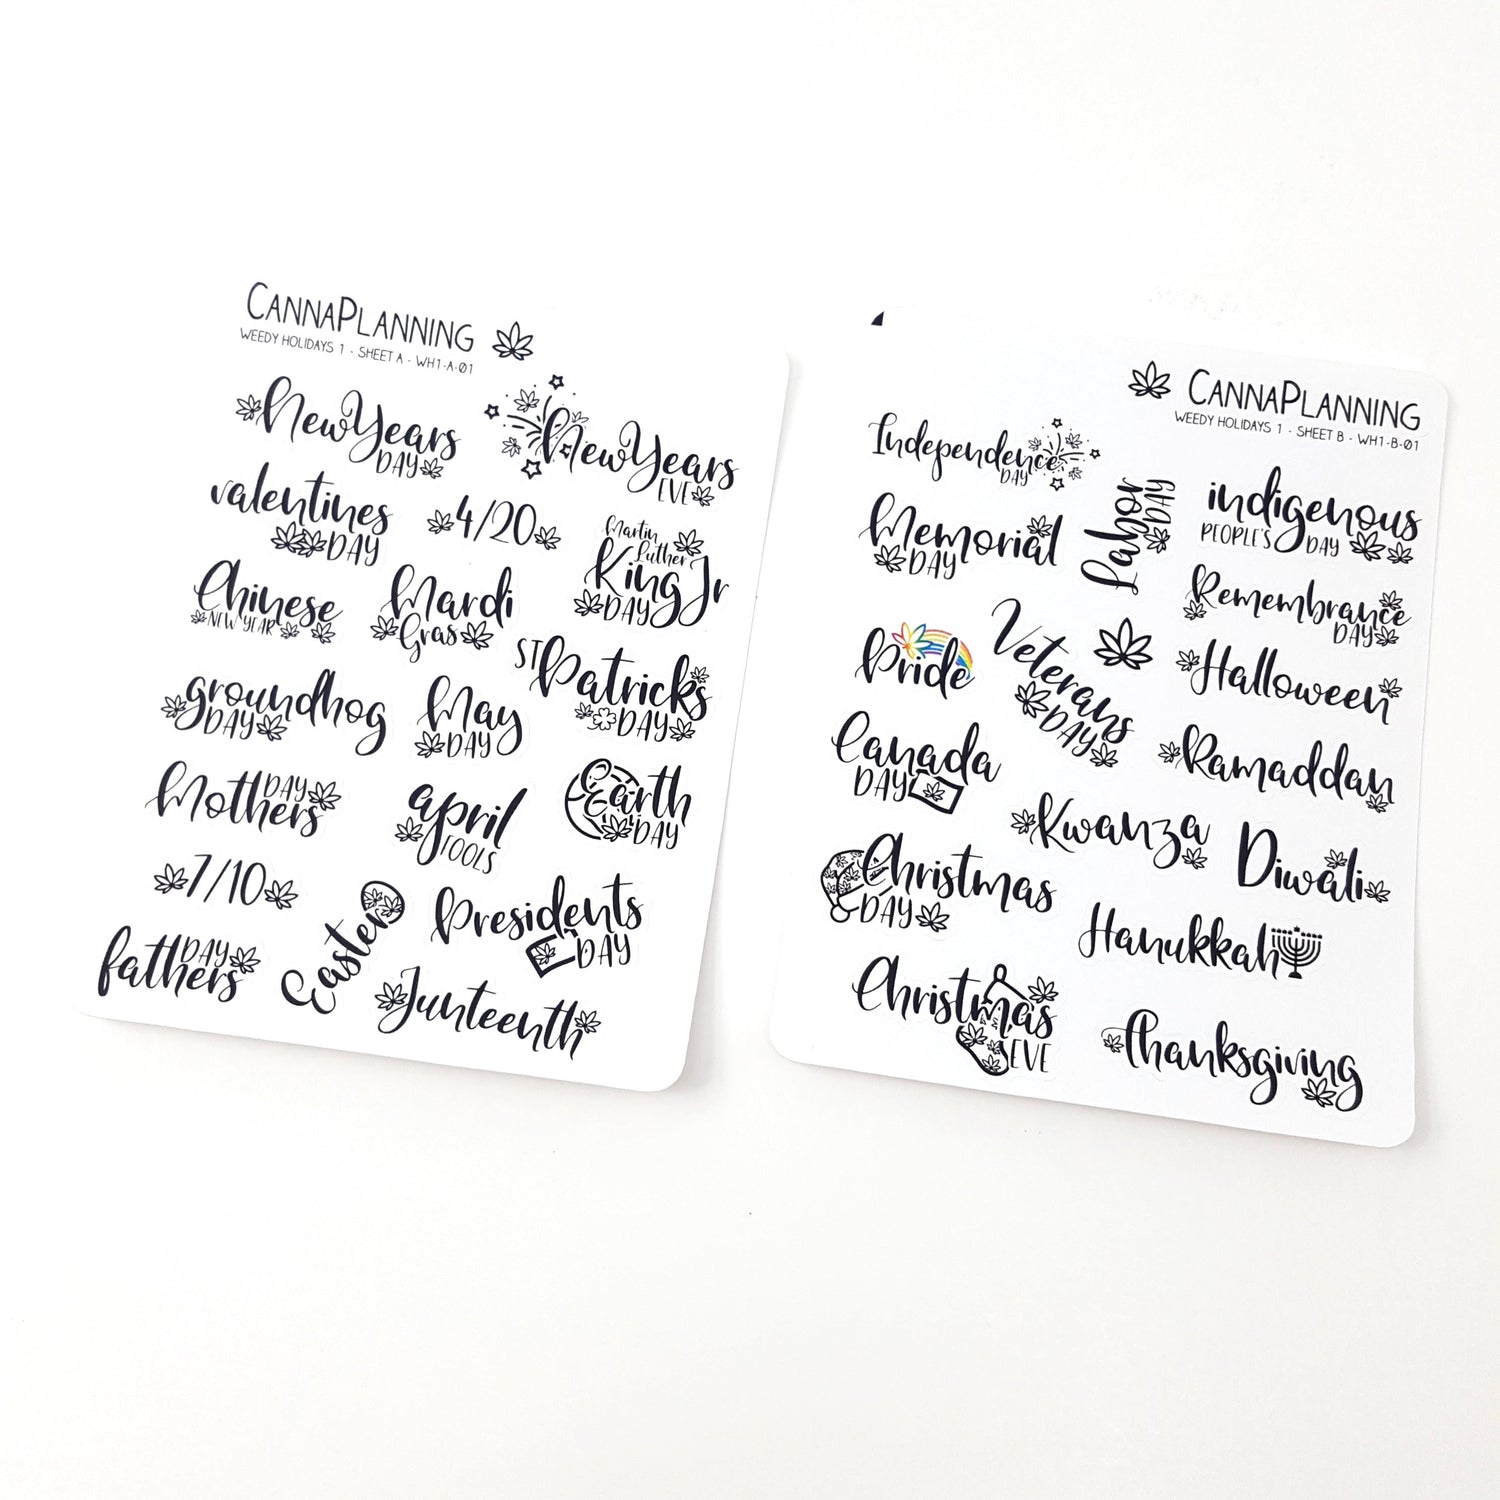 CANNAPLANNING
WEEDY HOLIDAYS 1 - SHEET A - WH1-A-01
New Years
DAY
New Years
EVE
valentines
DAY
4/20
Martin
Luther
King Jr
DAY
Chinese
NEW YEAR
Mardi
Gras
ST Patricks
DAY
groundhog
DAY
May
DAY
Mothers
DAY
april
FOOLS
Earth
DAY
7/10
Easter
Presidents
DAY
fathers
DAY
Junteenth
CANNAPLANNING
WEEDY HOLIDAYS 1 - SHEET B - WH1-B-01
Independence
DAY
Labor
DAY
indigenous
PEOPLE'S DAY
Memorial
DAY
Remembrance
DAY
Pride
Veterans
DAY
Halloween
Canada
DAY
Ramaddan
Kwanza
Diwali
Christmas
DAY
Hanukkah
Christmas
EVE
Thanksgiving